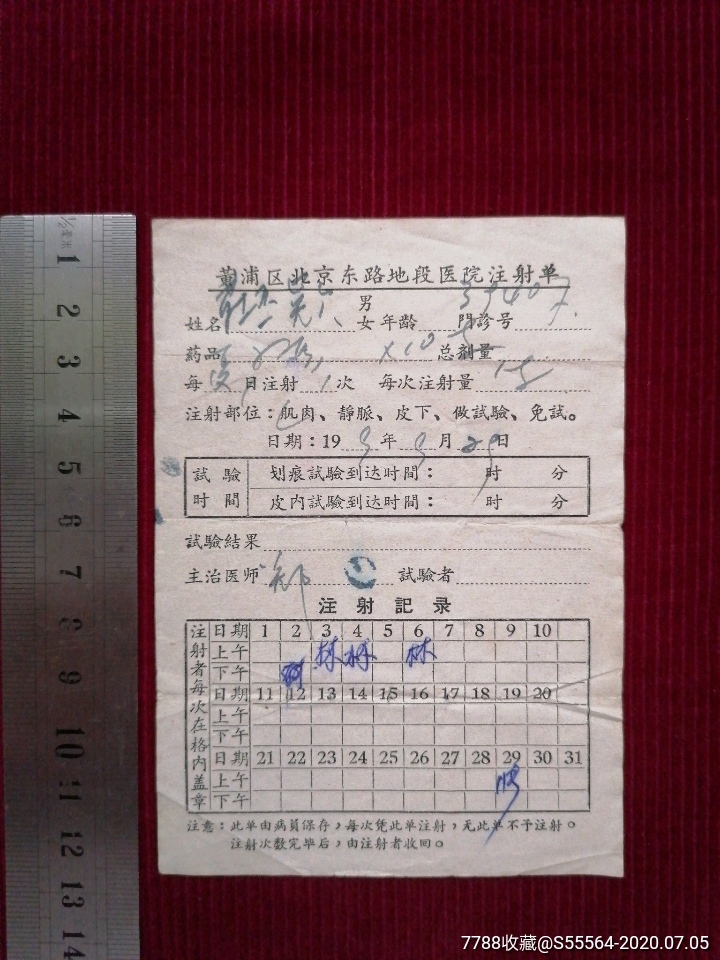 黄浦区北京东路地段医院注射单
姓名 男
女 年齡 門診号
葯品 ×10 总剂量
每 日注射 1 次 每次注射量
注射部位：肌肉、靜脈、皮下、做試驗、免試。
日期：19 年 月 29 日
試驗 划痕試驗到达时間： 时 分
时間 皮内試驗到达时間： 时 分
試驗結果
主治医师 郑 試驗者
注射記录
注射者每次在格内盖章
日期 1 2 3 4 5 6 7 8 9 10
上午 林 林 林
下午
日期 11 12 13 14 15 16 17 18 19 20
上午
下午
日期 21 22 23 24 25 26 27 28 29 30 31
上午
下午
注意：此单由病員保存，每次凭此单注射，无此单不予注射。
注射次数完毕后，由注射者收回。
1/2毫米
1
2
3
4
5
6
7
8
9
10
11
12
13
14
7788收藏@S55564-2020.07.05